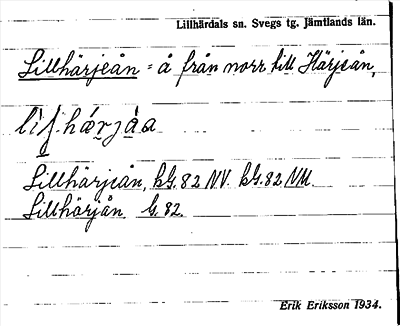 Lillhärdals sn. Svegs tg. Jämtlands län.
Lillhärjeån = å från norr till Härjeån,
Lillhärjeån, kG. 82 NV. kG. 82 NM.
Lillhärjån G. 82.
Erik Eriksson 1934.